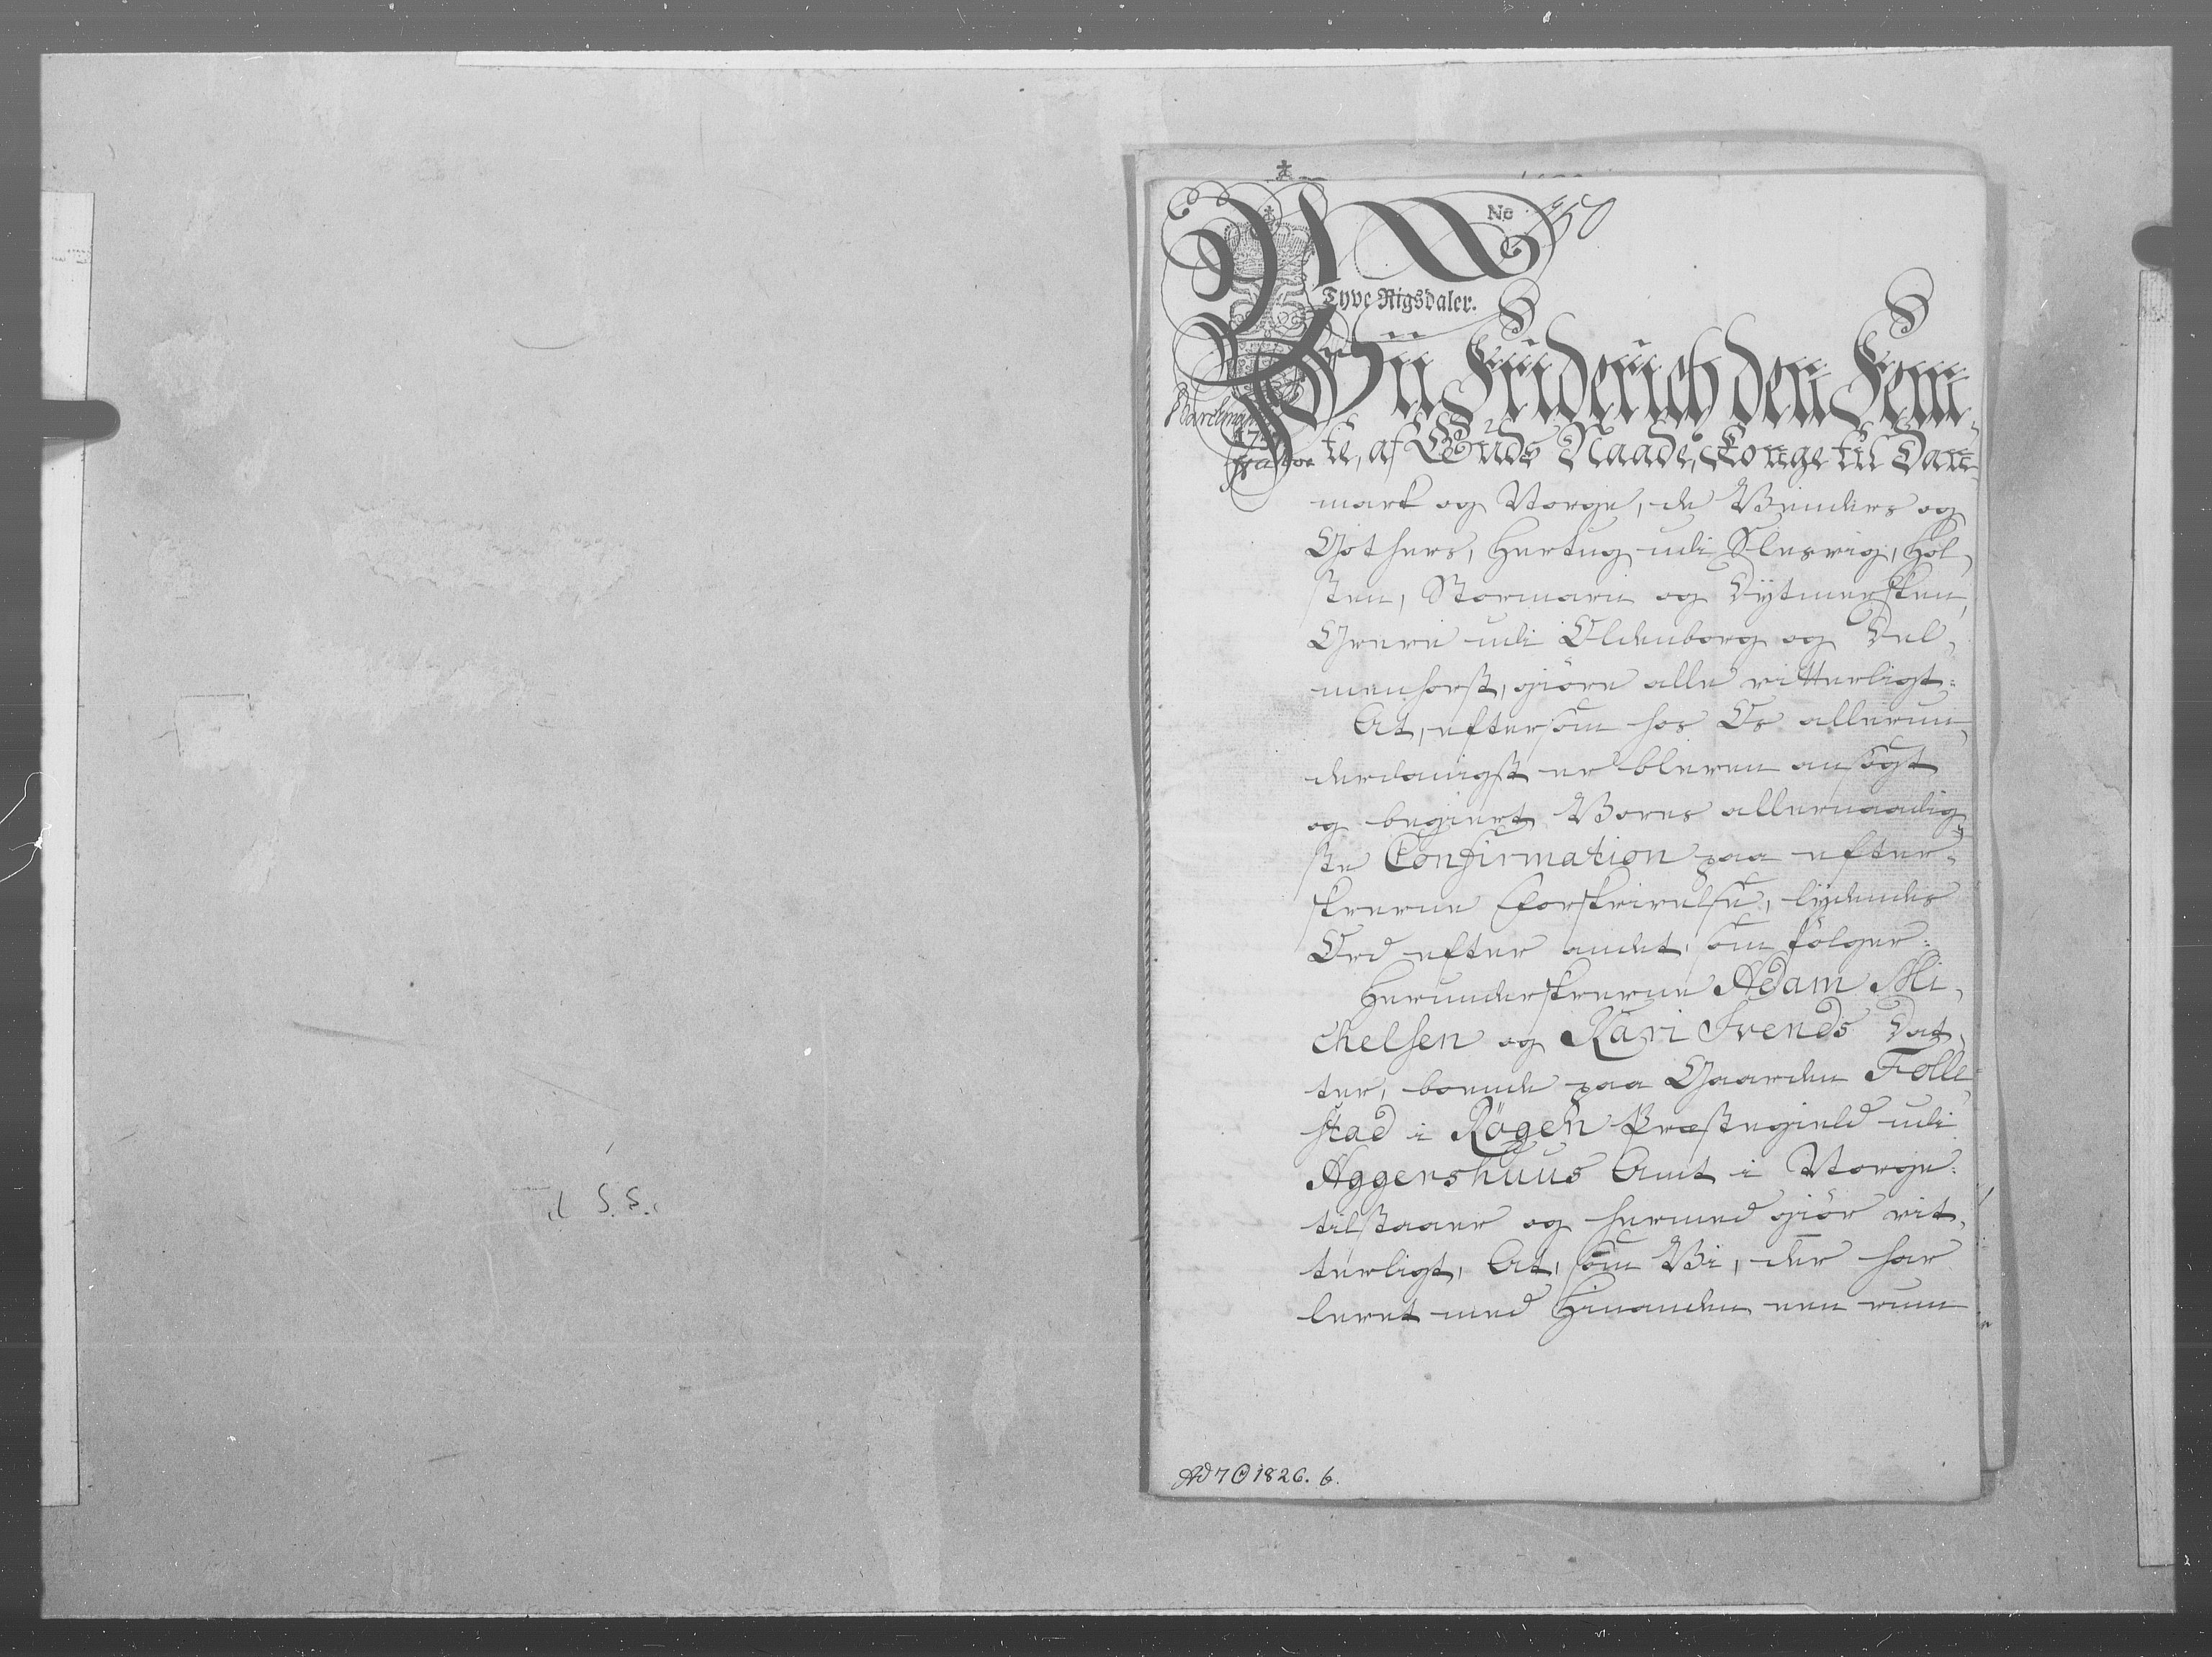 No 450
Tyve Rigsdaler.
Vii Friderich den Fem¬
te, af Guds Naade, Konge til Dan¬
mark og Norge, de Venders og
Gothers, Hertug udi Slesvig, Hol¬
sten, Stormarn og Dytmersken,
Greve udi Oldenborg og Del¬
menhorst, giøre alle vitterligt:
At, eftersom hos Os allerun¬
derdanigst er bleven ansøgt
og begiert Vores allernaadig¬
ste Confirmation paa efter¬
skrevne Forskrivelse, lydendes
Ord efter andet, som følger:
Herunderskrevne Adam Mi¬
chelsen og Kari Svends Dat¬
ter, boende paa Gaarden Folle¬
stad i Røgen Præstegield udi
Aggershuus Amt i Norge:
tilstaaer og hermed giør vit¬
terligt, At, som Vi, der har
levet med Hinanden een rum
Ad 7 1826. 6.